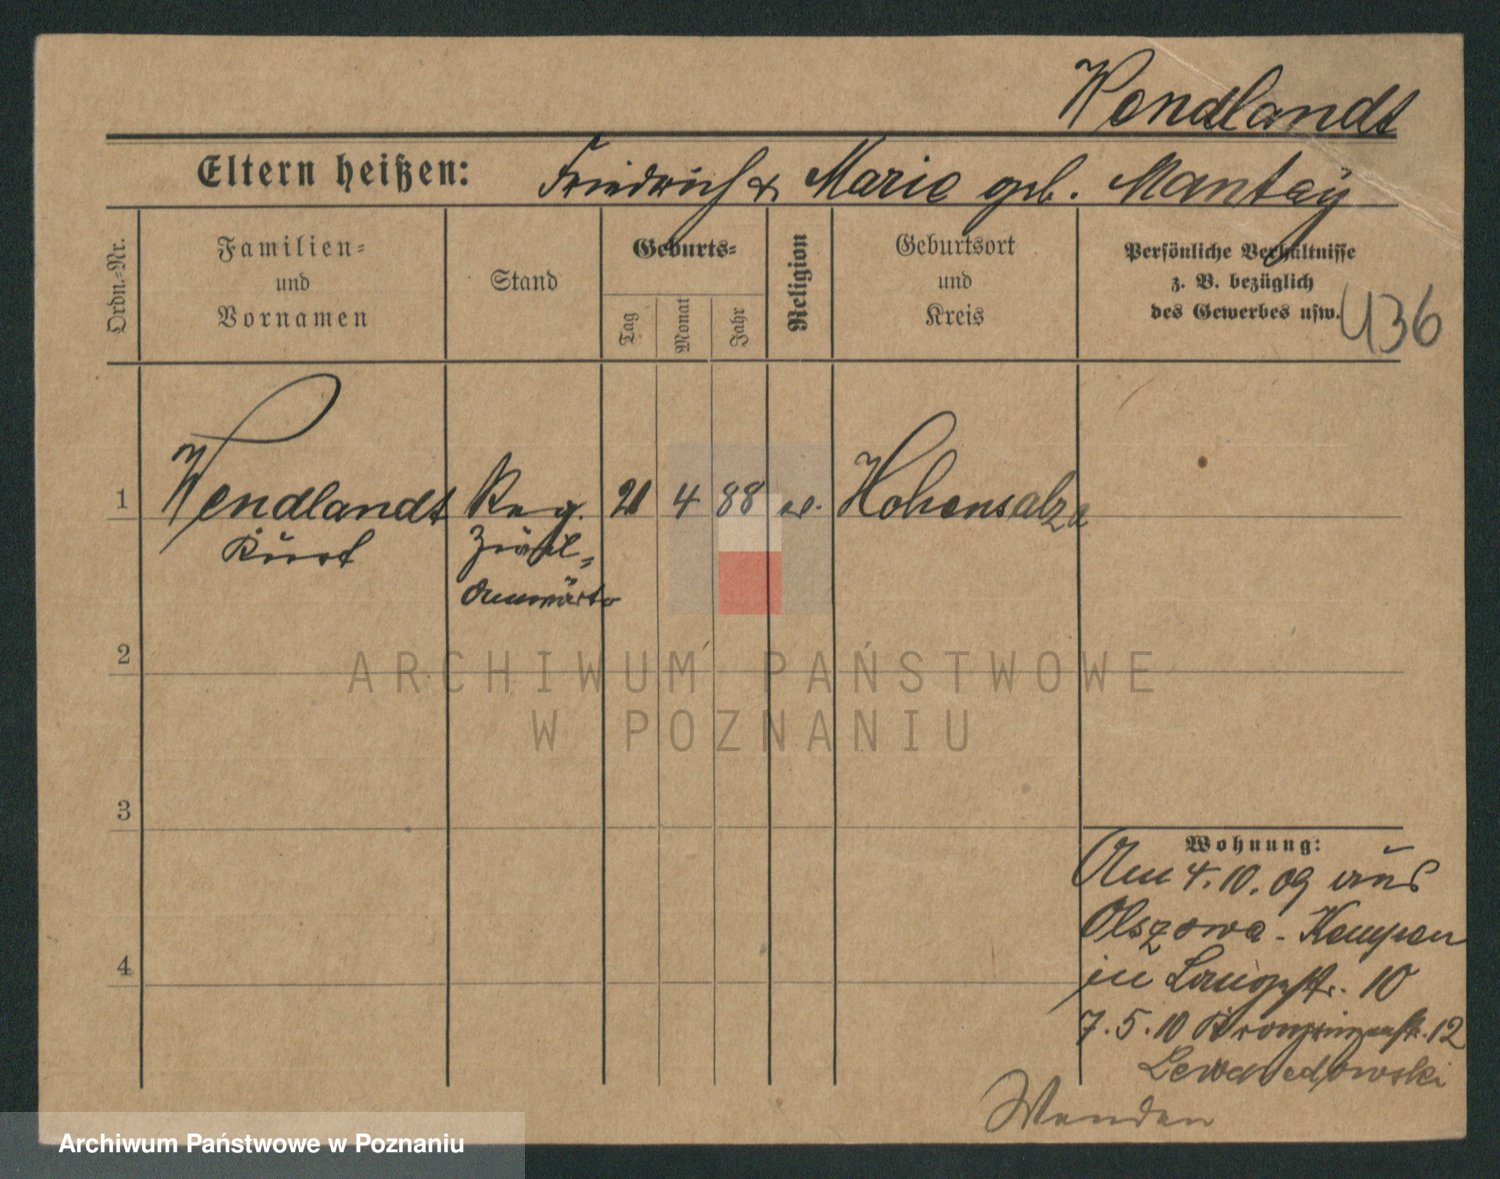 Wendlandt
Eltern heißen: Friedrich & Marie geb. Mantey
Ordn.-Nr.
Familien-
und
Vornamen
Stand
Geburts-
Tag
Monat
Jahr
Religion
Geburtsort
und
Kreis
Persönliche Verhältnisse
z. B. bezüglich
des Gewerbes usw.
436
1 Wendlandt Reg. 21 4 88 ev. Hohensalza
Kurt Zivil-
Anwärter
2
3
4
Wohnung:
Am 4.10.09 aus
Olszowa - Kempen
in Langestr. 10
7.5.10 Kronprinzenstr. 12
Lewandowski
Wenden
ARCHIWUM PAŃSTWOWE
W POZNANIU
Archiwum Państwowe w Poznaniu